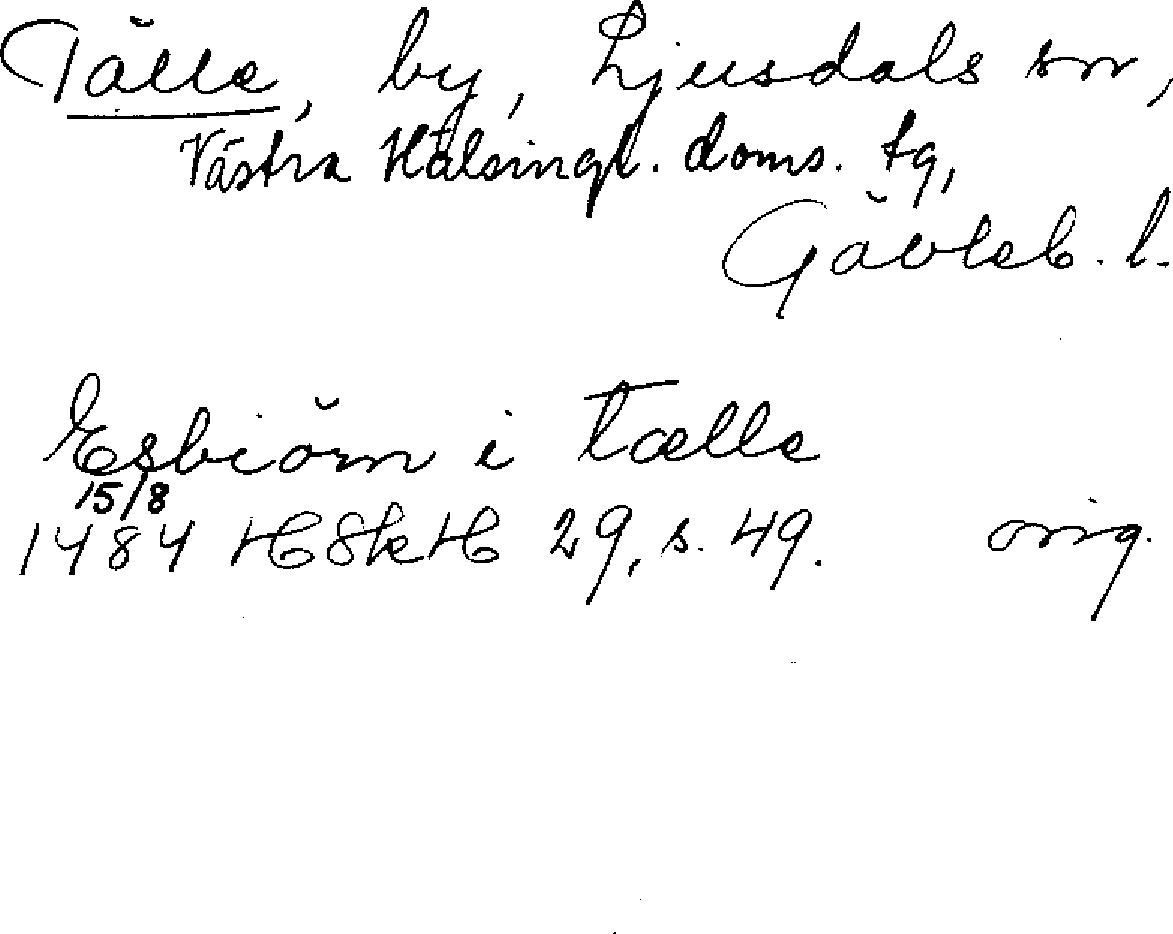 Tälle, by, Ljusdals sn,
Västra Hälsingl. doms. tg,
Gävleb. l.
Esbiörn i tælle
15/8
1484 HSkH 29, s. 49. orig.